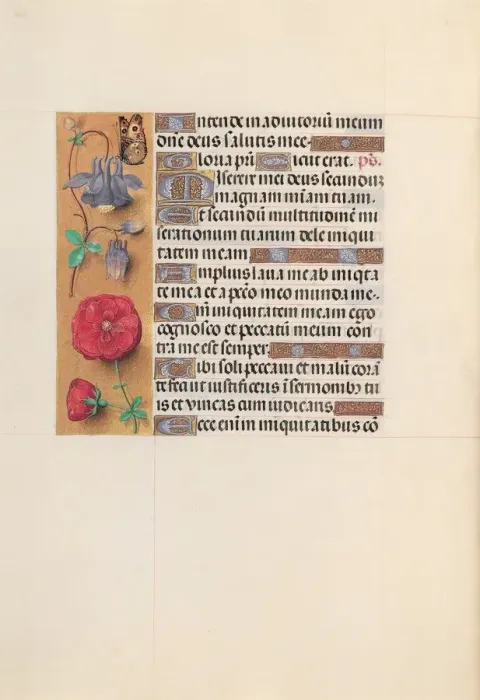 Intende in adiutoriũ meum
dñe deus salutis mee.
Gloria pr̃i Sicut erat. ps̃.
Miserere mei deus secundũ
magnam mĩam tuam.
Et secundũ multitudinẽ mi
serationum tuarum dele iniqui
tatem meam
Amplius laua me ab iniq̃ta
te mea et a pctõ meo munda me.
Qm̃ iniquitatem meam ego
cognosco et peccatũ meum cõn
tra me est semper.
Tibi soli peccaui et malũ corã
te feci ut iustificeris ĩ sermonibꝫ tu
is et vincas cum iudicaris
Ecce enĩ in iniquitatibus cõ